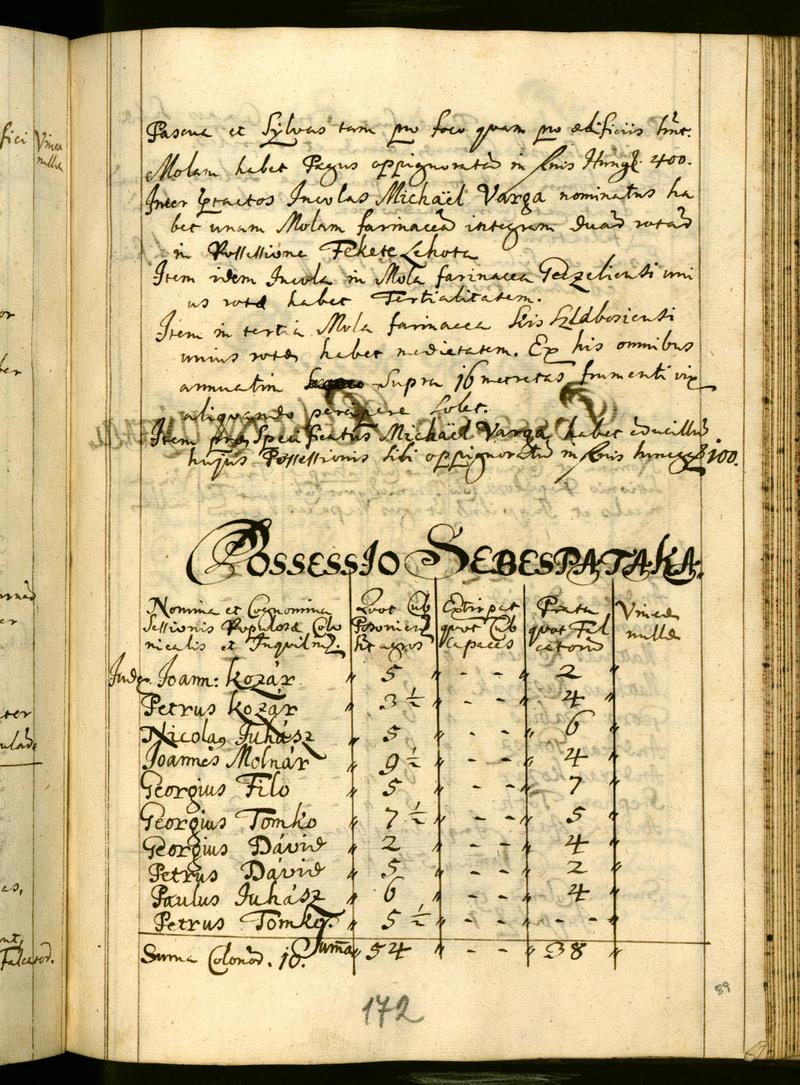 Pascua et Sylvas tam pro foco quam pro ædificiis hnt.
Molam habet Pagus oppignoratã in fnis Hung. 400.
Inter Incolas Michaël Varga nominatus ha
bet unam Molam farinaceã integram duarũ rotarũ
in Possessione Fekete Lehota
Item idem Incola in Mola farinacea Geczeliensi uni
us rotæ habet Tertialitatem.
Item in tertia Mola farinacea
unius rotæ habet medietatem. Ex his omnibus
annuatim Supra 16 metretas frumenti vix
aliquando percipere solet.
Item Specificatus Michaël Varga habet educillũ
hujus Possessionis sibi oppignoratũ in fnis 100.
Possessio Sebespataka.
Nomina et Cognomina
Sessionis Populosæ Colo
nicalis et Inquilin.
Quot Cub
Posonien
hñt agros
Extirpat
quot Cub
capaces
Prata
quot Fal
catorũ
Vineæ
nullæ
Judex. Joann: Kozár " 5 " - - " 2 "
Petrus Kozár " 3 ½ " - - " 4 "
Nicolaus Juhász " 5 " - - " 6 "
Joannes Molnár " 9 ½ " - - " 4 "
Georgius Filo " 5 " - - " 7 "
Georgius Tomko " 7 ½ " - - " 5 "
Georgius Dávid " 2 " - - " 4 "
Petrus Dávid " 5 " - - " 2 "
Paulus Juhász " 6 " - - " 4 "
Petrus Tomko. " 5 ½ " - - " - - "
Suma Colonor. 10. Suma " 54 " - - " 38 "
172
89